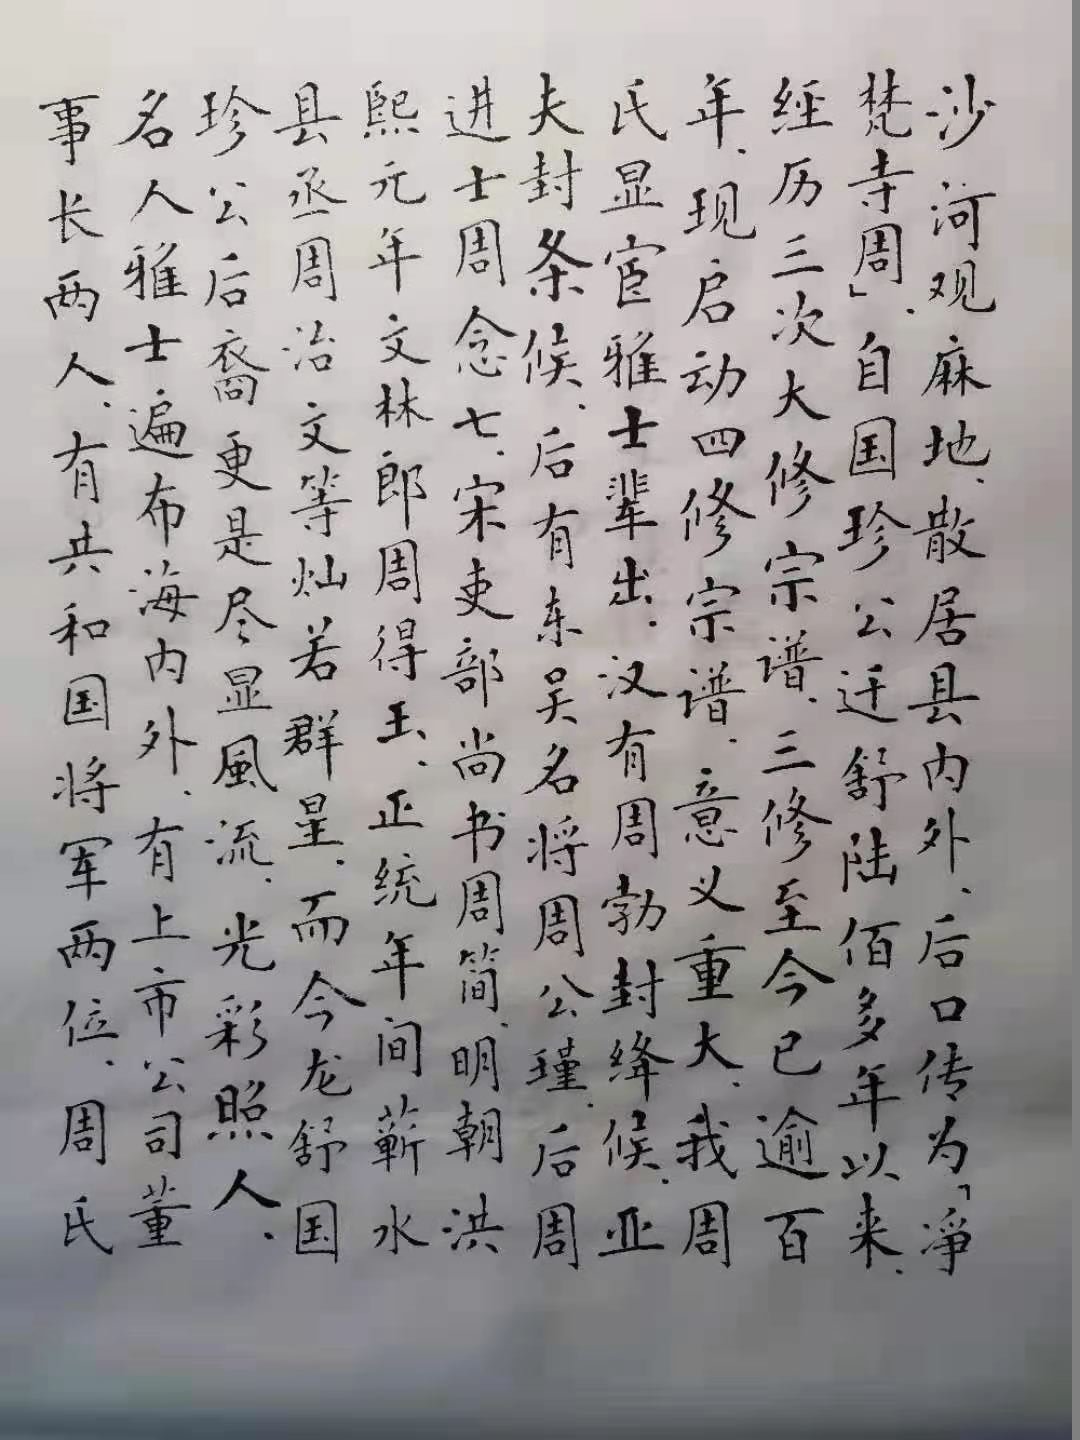 沙河观麻地、散居县内外、后口传为「净
梵寺周」、自国珍公迁舒陆佰多年以来、
经历三次大修宗谱、三修至今已逾百
年、现启动四修宗谱、意义重大、我周
氏显宦雅士辈出、汉有周勃封绛候、亚
夫封条候、后有东吴名将周公瑾、后周
进士周念七、宋吏部尚书周简、明朝洪
熙元年文林郎周得玉、正统年间蕲水
县丞周治文等灿若群星、而今龙舒国
珍公后裔更是尽显風流、光彩照人、
名人雅士遍布海内外、有上市公司董
事长两人、有共和国将军两位、周氏